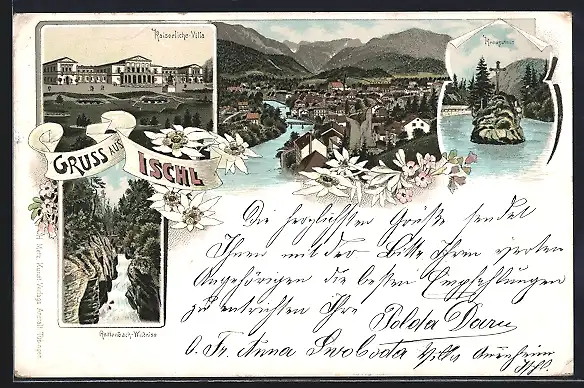 Kaiserliche Villa
Kreuzstein
GRUSS AUS
ISCHL
Rettenbach-Wildniss
H. Metz, Kunst-Verlags-Anstalt, Tübingen
Die herzlichsten Grüße sendet
Ihnen mit der Bitte Ihren werten
Angehörigen die besten Empfehlungen
zu entrichten Ihre Polda
b. Fr. Anna Swoboda Villa
Ischl.